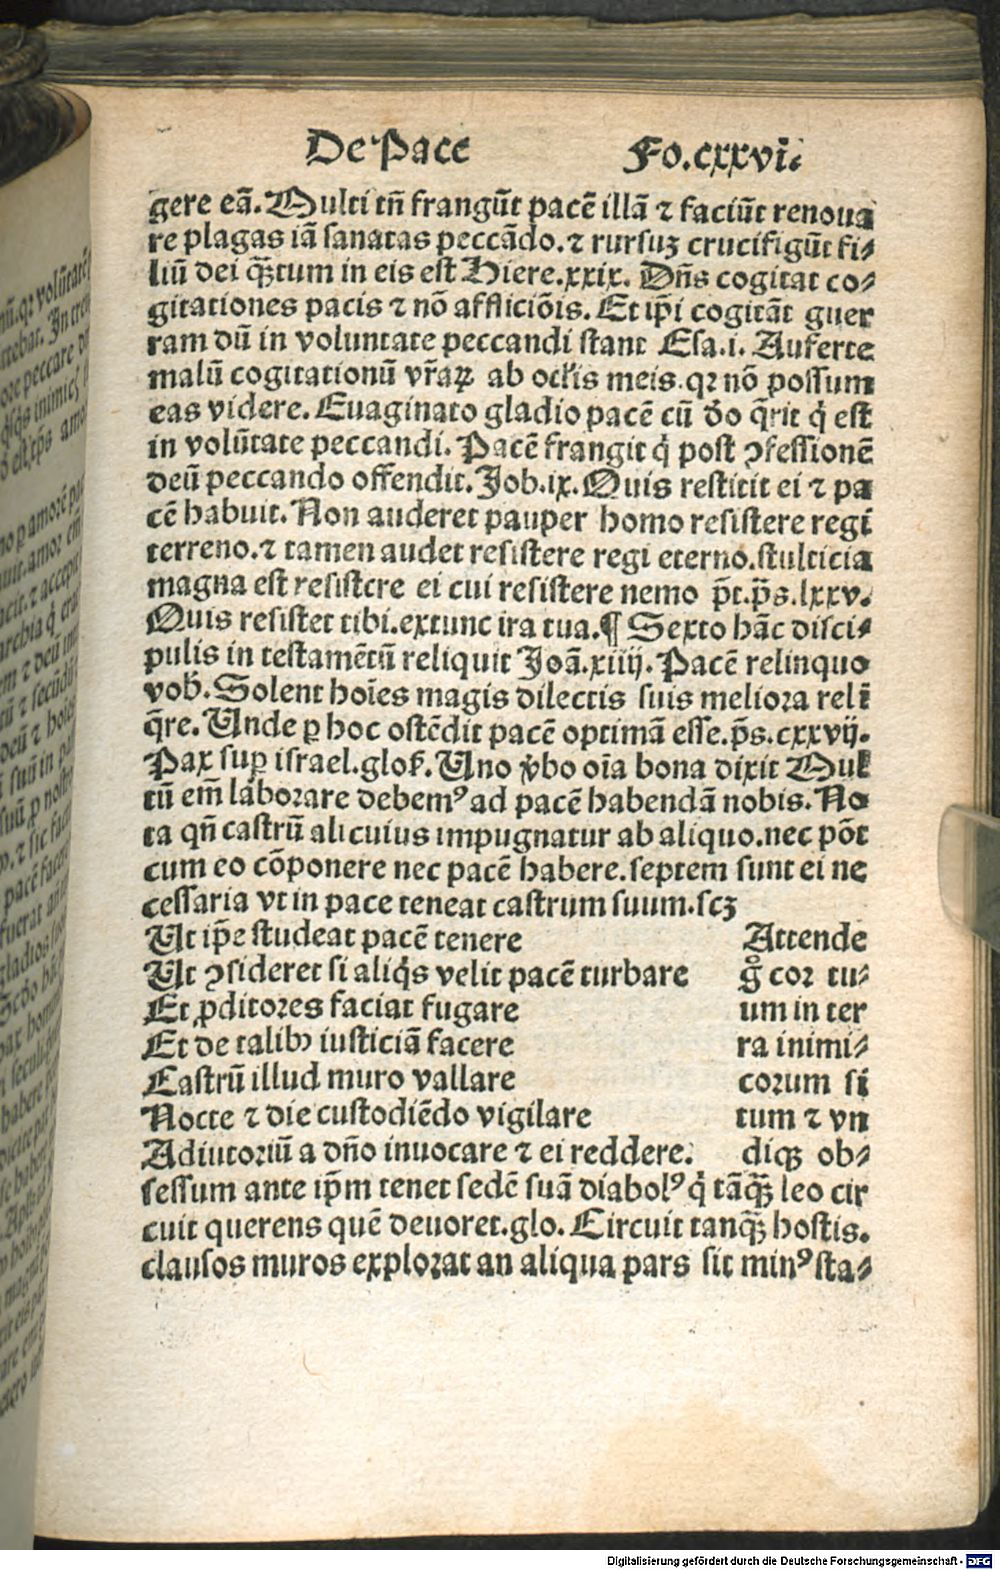 De Pace Fo.cxxvi.
gere eã. Multi tñ frangũt pacẽ illã ⁊ faciũt renoua
re plagas iã sanatas peccãdo.⁊ rursuʒ crucifigũt fi⸗
liũ dei qꝫtum in eis est Hiere.xxix. Dñs cogitat co⸗
gitationes pacis ⁊ nõ afflictiõis. Et ip̃i cogitãt guer
ram dũ in voluntate peccandi stant Esa.i. Auferte
malũ cogitationũ vr̃aꝝ ab ocłis meis.qꝛ nõ possum
eas videre. Euaginato gladio pacẽ cũ deo q̃rit q̇ est
in volũtate peccandi. Pacẽ frangit q̇ post ↄfessionẽ
deũ peccando offendit. Job.ix. Quis restitit ei ⁊ pa
cẽ habuit. Non auderet pauper homo resistere regi
terreno.⁊ tamen audet resistere regi eterno.stulticia
magna est resistere ei cui resistere nemo p̃t.p̃s.lxxv.
Quis resistet tibi.extunc ira tua.¶ Sexto hãc disci⸗
pulis in testamẽtũ reliquit Joã.xiiij. Pacẽ relinquo
vob̃. Solent hoĩes magis dilectis suis meliora relĩ
q̃re. Unde ꝑ hoc ostẽdit pacẽ optimã esse.p̃s.cxxvij.
Pax suꝑ israel.glos̃. Uno v̾bo oĩa bona dixit Mul
tũ em̃ laborare debemꝰ ad pacẽ habendã nobis. No
ta qñ castrũ alicuius impugnatur ab aliquo.nec põt
cum eo cõponere nec pacẽ habere.septem sunt ei ne
cessaria vt in pace teneat castrum suum.scʒ
Ut ip̃e studeat pacẽ tenere Attende
Ut ↄsideret si aliq̇s velit pacẽ turbare g̊ cor tu⸗
Et ꝓditores faciat fugare um in ter
Et de talibꝫ iusticiã facere ra inimi⸗
Castrũ illud muro vallare corum si
Nocte ⁊ die custodiẽdo vigilare tum ⁊ vn
Adiutoriũ a dño inuocare ⁊ ei reddere. diqꝫ ob⸗
sessum ante ip̃m tenet sedẽ suã diabolꝰ q̇ tãqꝫ leo cir
cuit querens quẽ deuoret.glo. Circuit tanqꝫ hostis.
clausos muros explorat an aliqua pars sit minꝰ sta⸗
Digitalisierung gefördert durch die Deutsche Forschungsgemeinschaft - DFG